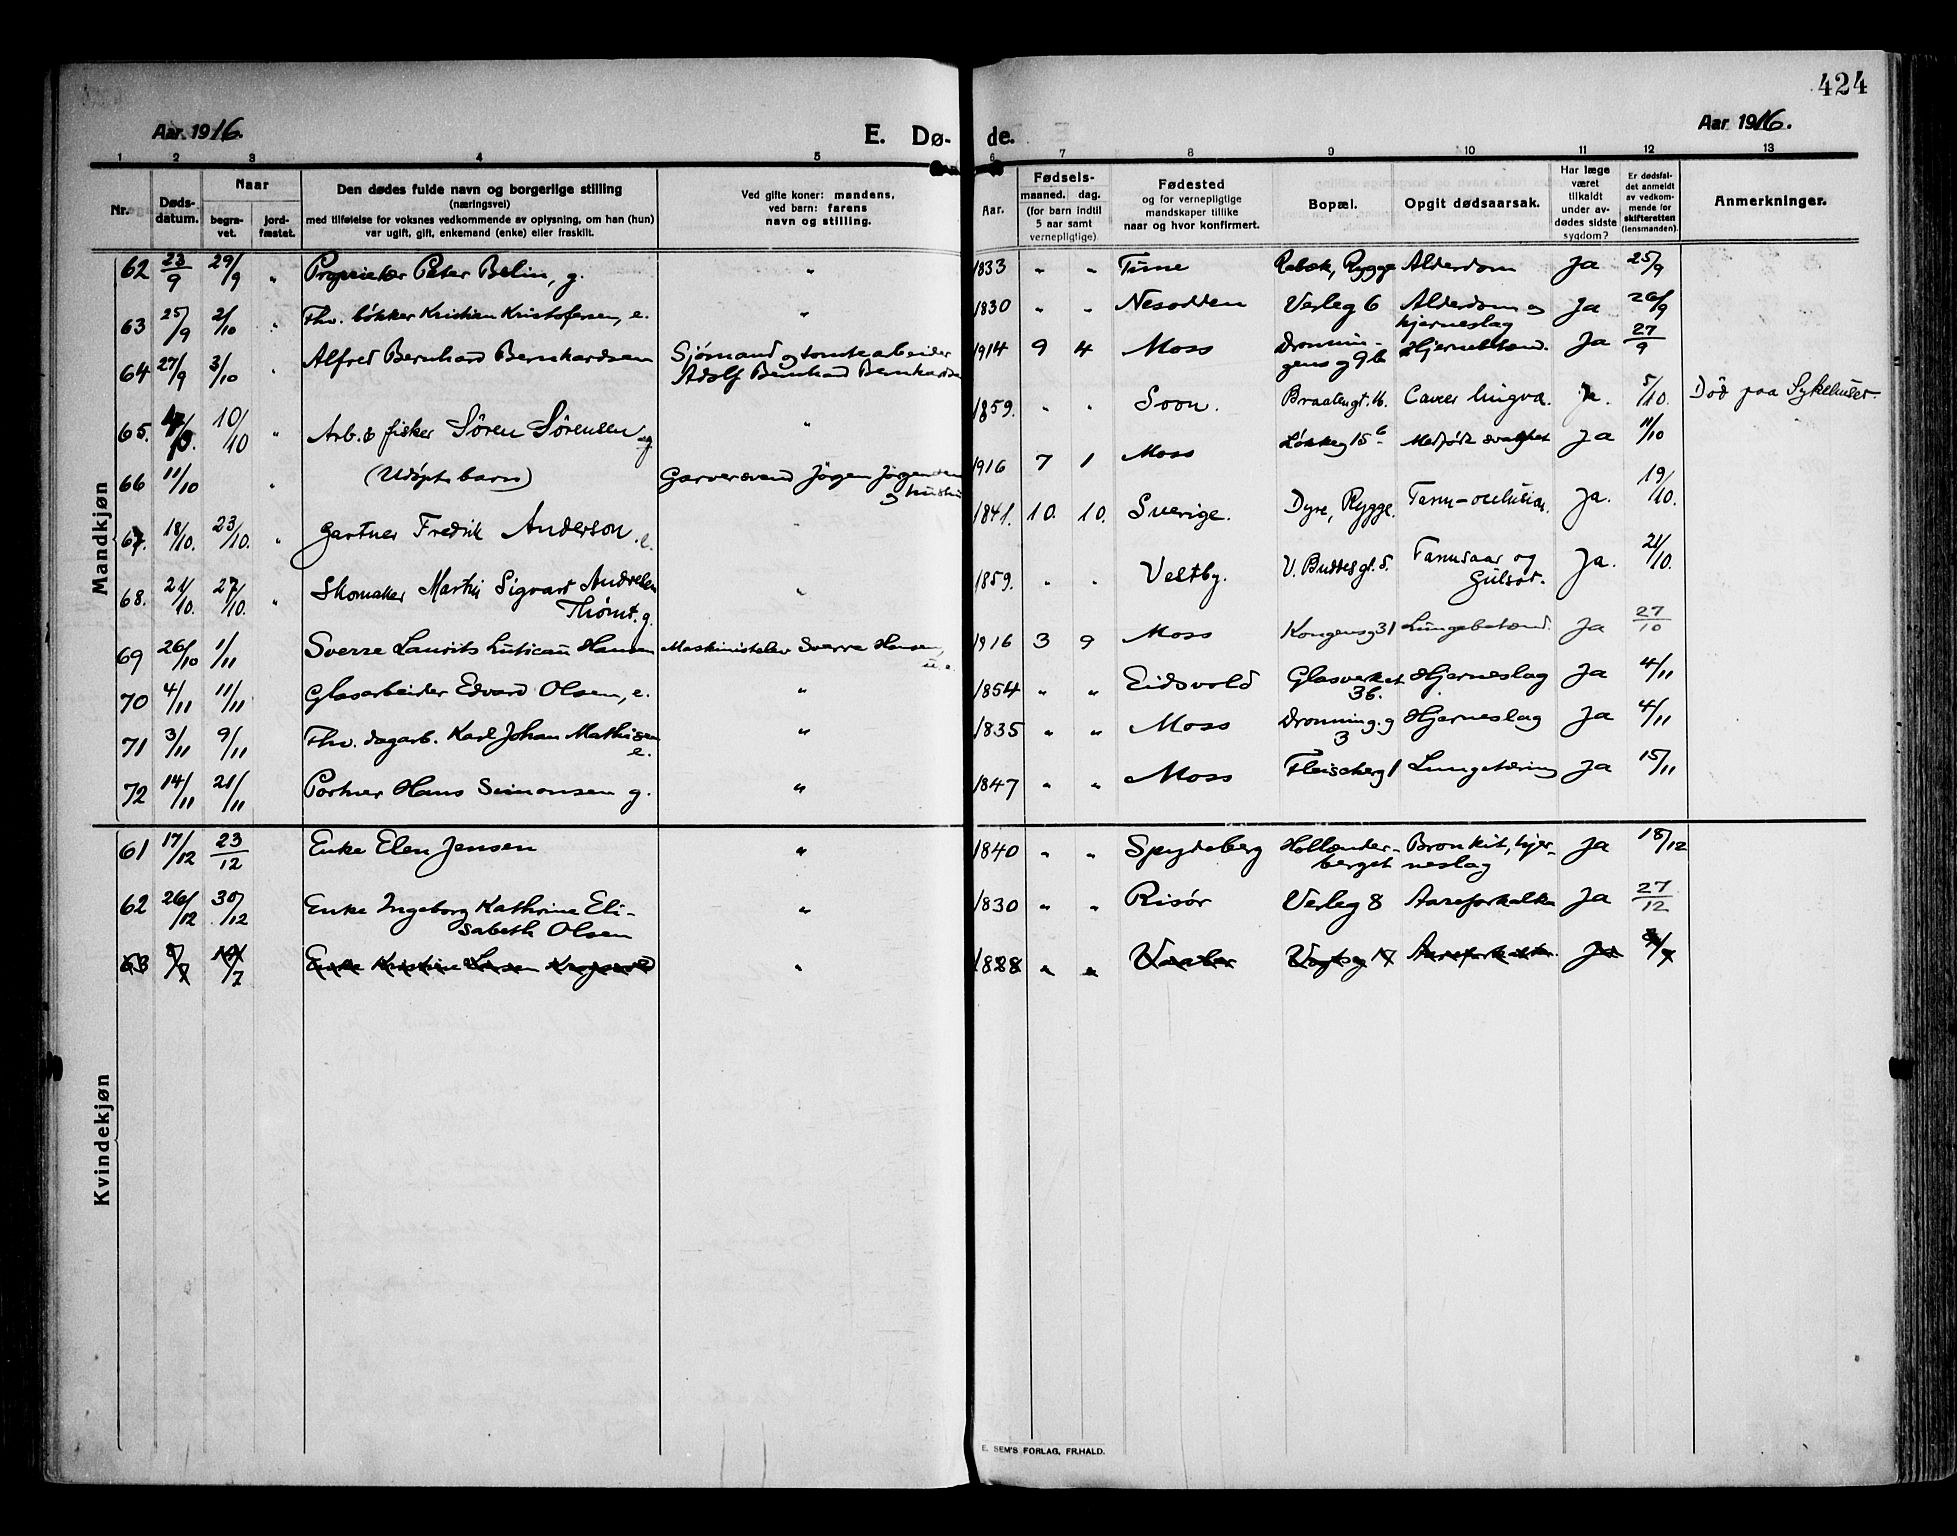 424
Aar 1916.
E. Dø-
de.
Aar 1916.
1 2 3 4 5 6 7 8 9 10 11 12 13
Nr.
Døds-
datum.
Naar
begra-
vet.
jord-
fæstet.
Den dødes fulde navn og borgerlige stilling
(næringsvei)
med tilføielse for voksnes vedkommende av oplysning, om han (hun)
var ugift, gift, enkemand (enke) eller fraskilt.
Ved gifte koner: mandens,
ved barn: farens
navn og stilling.
Aar.
Fødsels-
maaned. dag.
(for barn indtil
5 aar samt
vernepligtige)
Fødested
og for vernepligtige
mandskaper tillike
naar og hvor konfirmert.
Bopæl.
Opgit dødsaarsak.
Har læge
været
tilkaldt
under av-
dødes sidste
sygdom?
Er dødsfal-
det anmeldt
av vedkom-
mende for
skifteretten
(lensmanden).
Anmerkninger.
Mandkjøn
62 23/9 29/9 " Proprietær Peter Belin, g. " 1833 " " Time Rabæk, Rygge Alderdom Ja 25/9
63 25/9 2/10 " Fhv. løkker Kristian Kristofersen, e. " 1830 " " Nesodden Verleg 6 Alderdom og Ja 26/9
hjerneslag
64 27/9 3/10 " Alfred Bernhard Bernhardsen Sjømand og tomtearbeider 1914 9 4 Moss Dronnin- Hjernebetænd. Ja 27/9
Adolf Bernhard Bernhardsen gens g 9b
65. 10/10 " Arb. & fisker Søren Sørensen g. " 1859. " " Soon. Braatengt. 16. Cancer lingvæ. Ja. 5/10. Død paa Sykehuset.
66 11/10 " (Udøpt barn) Garversvend Jörgen Jörgensen 1916 7 1 Moss Løkkeg 15 b Medfødt svakhet Ja 11/10
67. 18/10. 23/10. " Gartner Fredrik Anderson. e. " 1841. 10. 10. Sverige. Dyre, Rygge. Tarm-occlusion. Ja. 19/10.
68. 21/10. 27/10. " Skomaker Martin Sigvart Andresen " 1859. " " Vestby. V. Buttes gt. 5. Tarmsaar og Ja. 21/10.
Thømt. g. Gulsot.
69 26/10 1/11 Sverre Laurits Hansen Maskinistelev Sverre Hansen, 1916 3 9 Moss Kongensg 31 Lungebetænd. Ja 27/10
70 4/11 11/11 Glasarbeider Edvard Olsen, e. " 1854 " " Eidsvold Glasverket Hjerneslag Ja 4/11
36.
71 3/11 9/11 Fhv. dagarb. Karl Johan Mathisen " 1835 " " Moss Dronning. g Hjerneslag Ja 4/11
e. 3
72 14/11 21/11 Portner Hans Simonsen g. " 1847 " " Moss Fleischerg 1 Lungetæring Ja 15/11
Kvindekjøn
61 17/12 23/12 Enke Elen Jensen " 1840 " " Spydeberg Hollænder- Bronkit, hjer- Ja 18/12
berget neslag
62 26/12 30/12 Enke Ingeborg Kathrine Eli- " 1830 " " Risør Verleg 8 Aareforkalkn Ja 27/12
sabeth Olsen
63 8/7 Enke Kristine Larsen " 1828 " " Vaaler Vogtsg 17 Aareforkalkn. Ja
E. SEM'S FORLAG, FR.HALD.